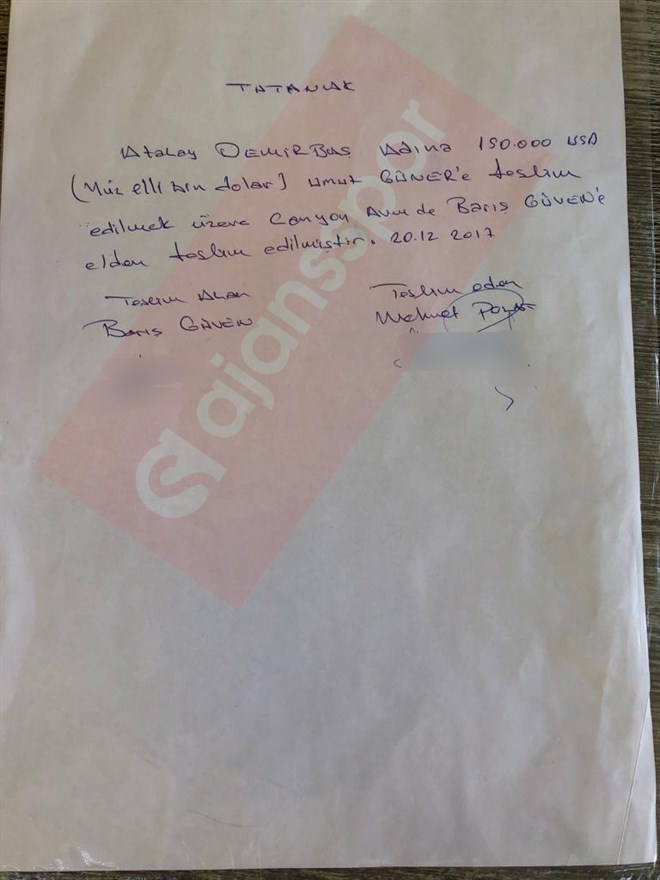 TUTANAK
Atalay DEMİRBAŞ Adına 150.000 USD
(Yüz elli bin dolar) Umut GÜNER'e teslim
edilmek üzere Canyon Avm de Barış GÜVEN'e
elden teslim edilmiştir. 20.12 2017
Teslim Alan Teslim eden
Barış GÜVEN Mehmet POLAT
ajansspor